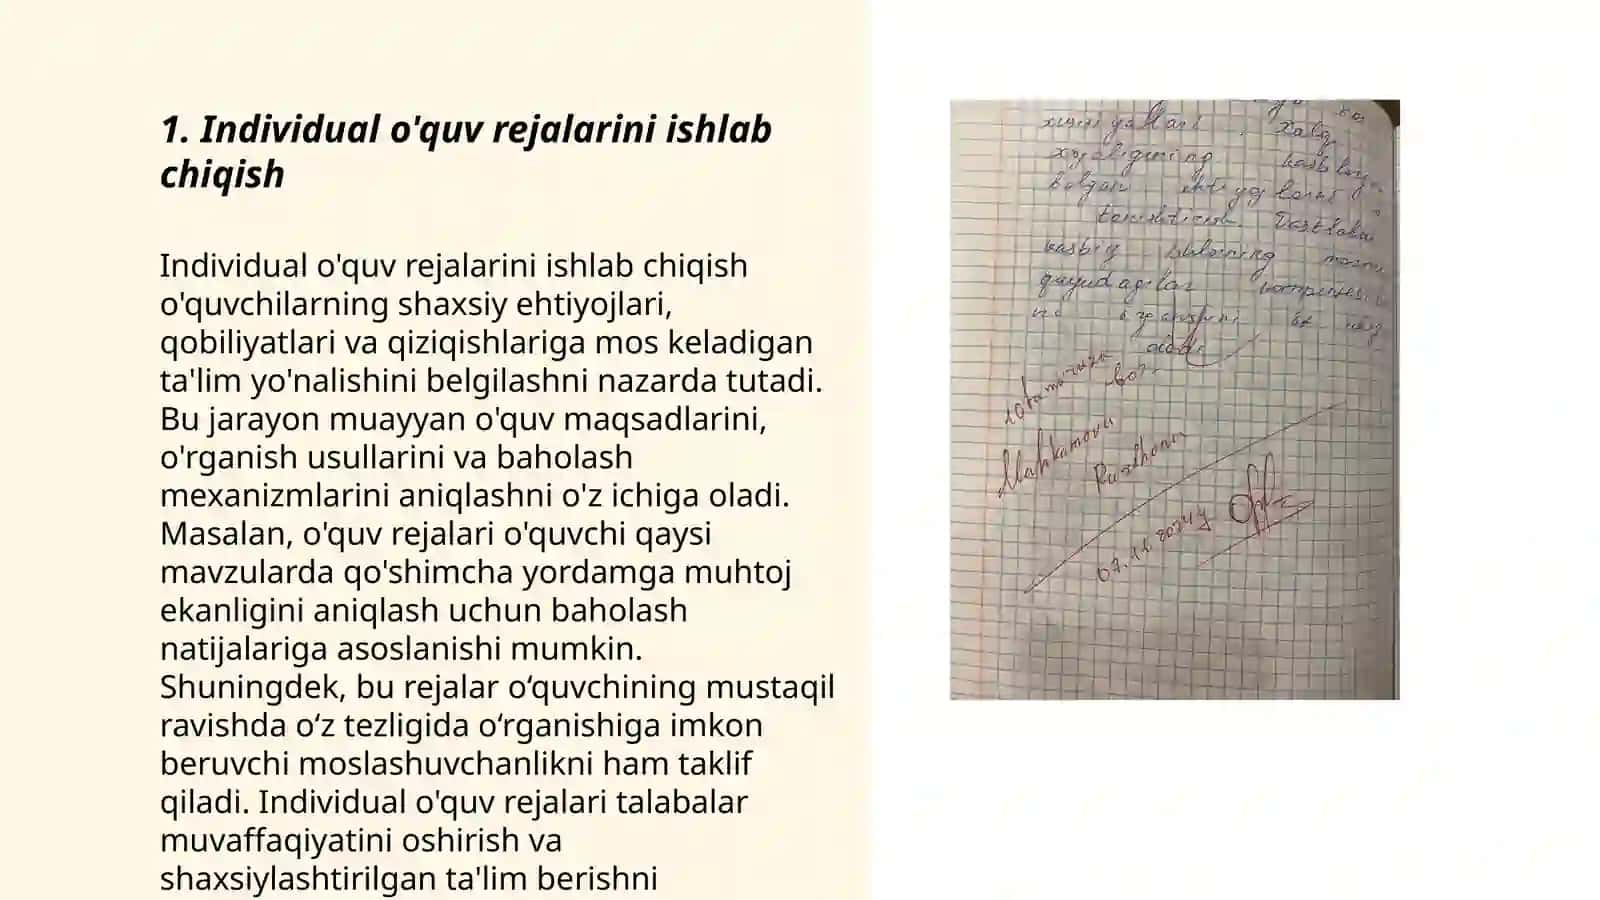 1. Individual o'quv rejalarini ishlab
chiqish
Individual o'quv rejalarini ishlab chiqish
o'quvchilarning shaxsiy ehtiyojlari,
qobiliyatlari va qiziqishlariga mos keladigan
ta'lim yo'nalishini belgilashni nazarda tutadi.
Bu jarayon muayyan o'quv maqsadlarini,
o'rganish usullarini va baholash
mexanizmlarini aniqlashni o'z ichiga oladi.
Masalan, o'quv rejalari o'quvchi qaysi
mavzularda qo'shimcha yordamga muhtoj
ekanligini aniqlash uchun baholash
natijalariga asoslanishi mumkin.
Shuningdek, bu rejalar o‘quvchining mustaqil
ravishda o‘z tezligida o‘rganishiga imkon
beruvchi moslashuvchanlikni ham taklif
qiladi. Individual o'quv rejalari talabalar
muvaffaqiyatini oshirish va
shaxsiylashtirilgan ta'lim berishni
xalq
bolgan
kasbiy
oladi